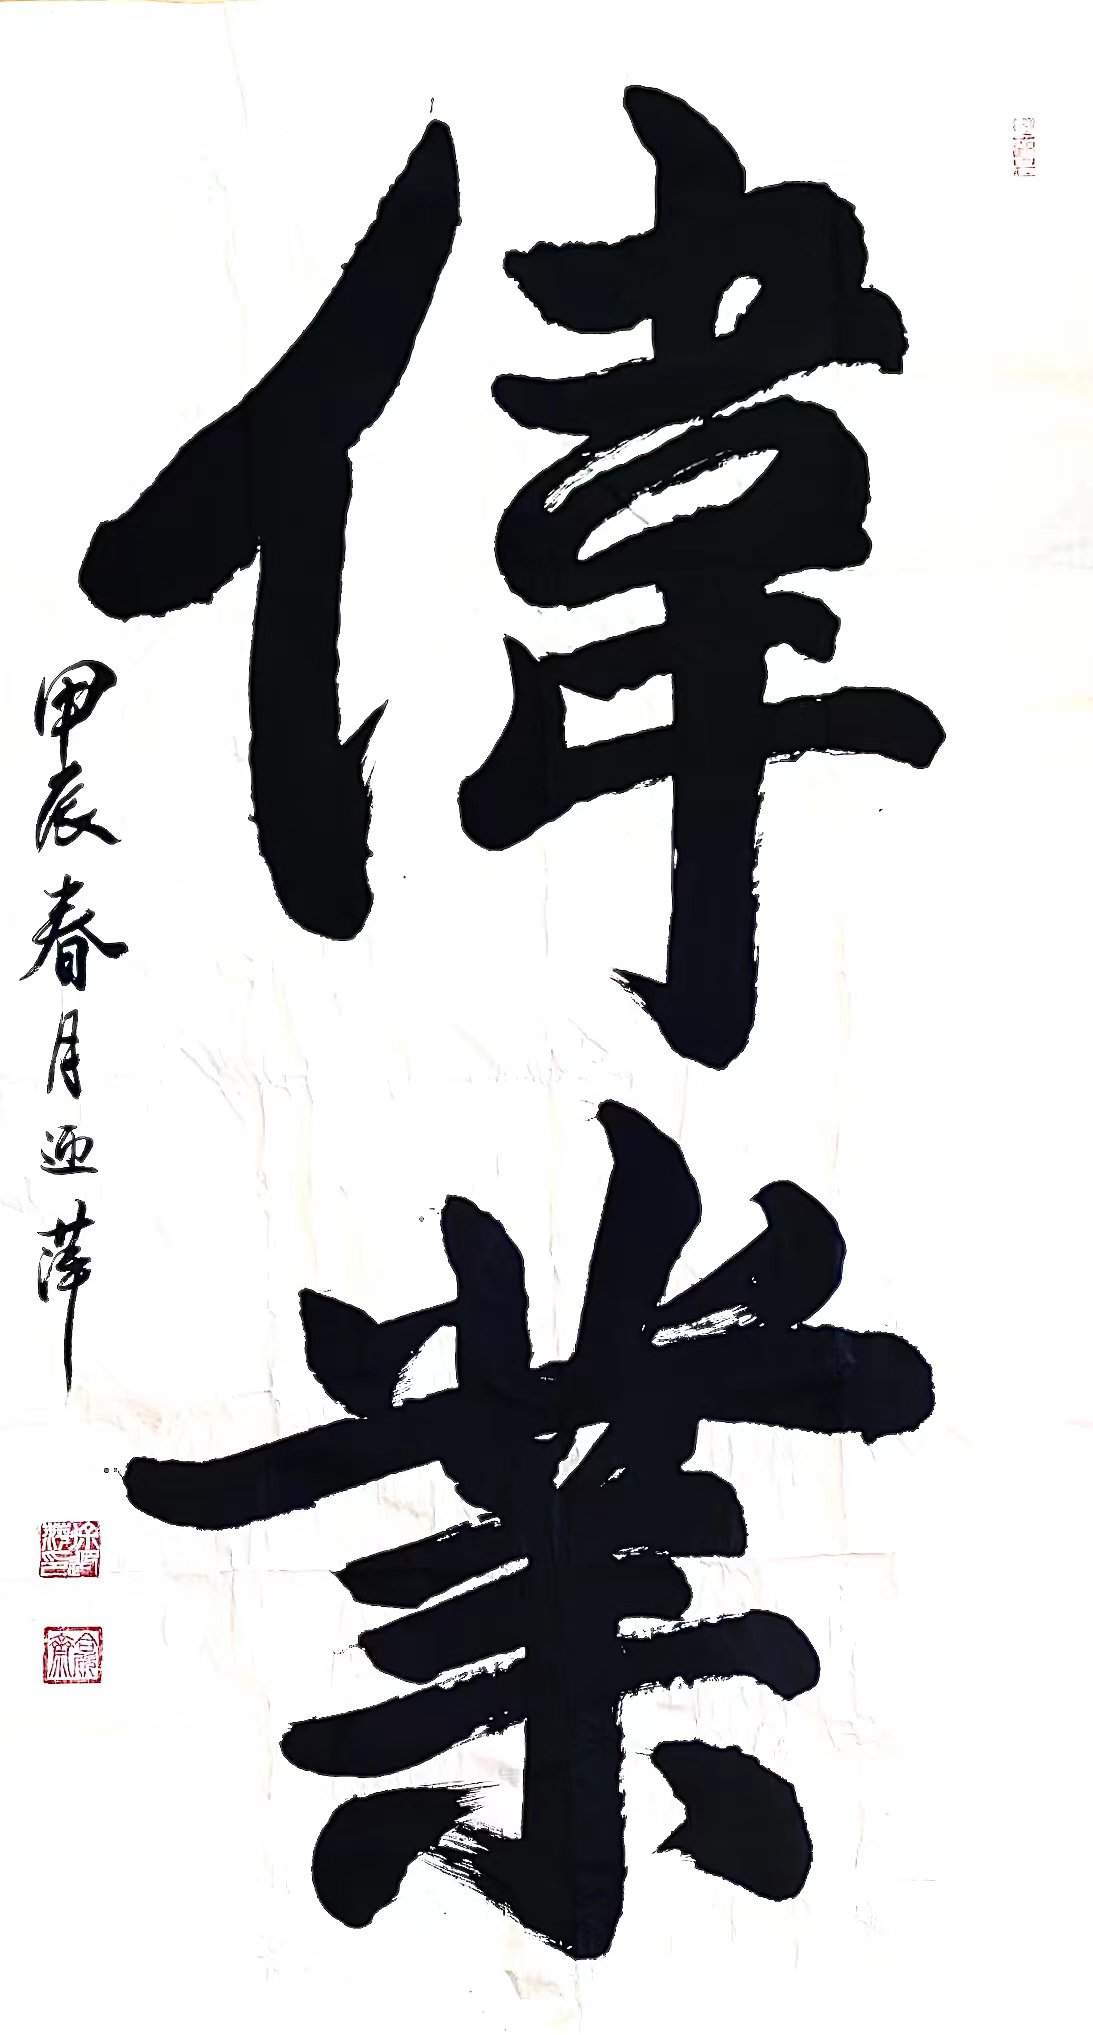 偉業
甲辰春月迎萍